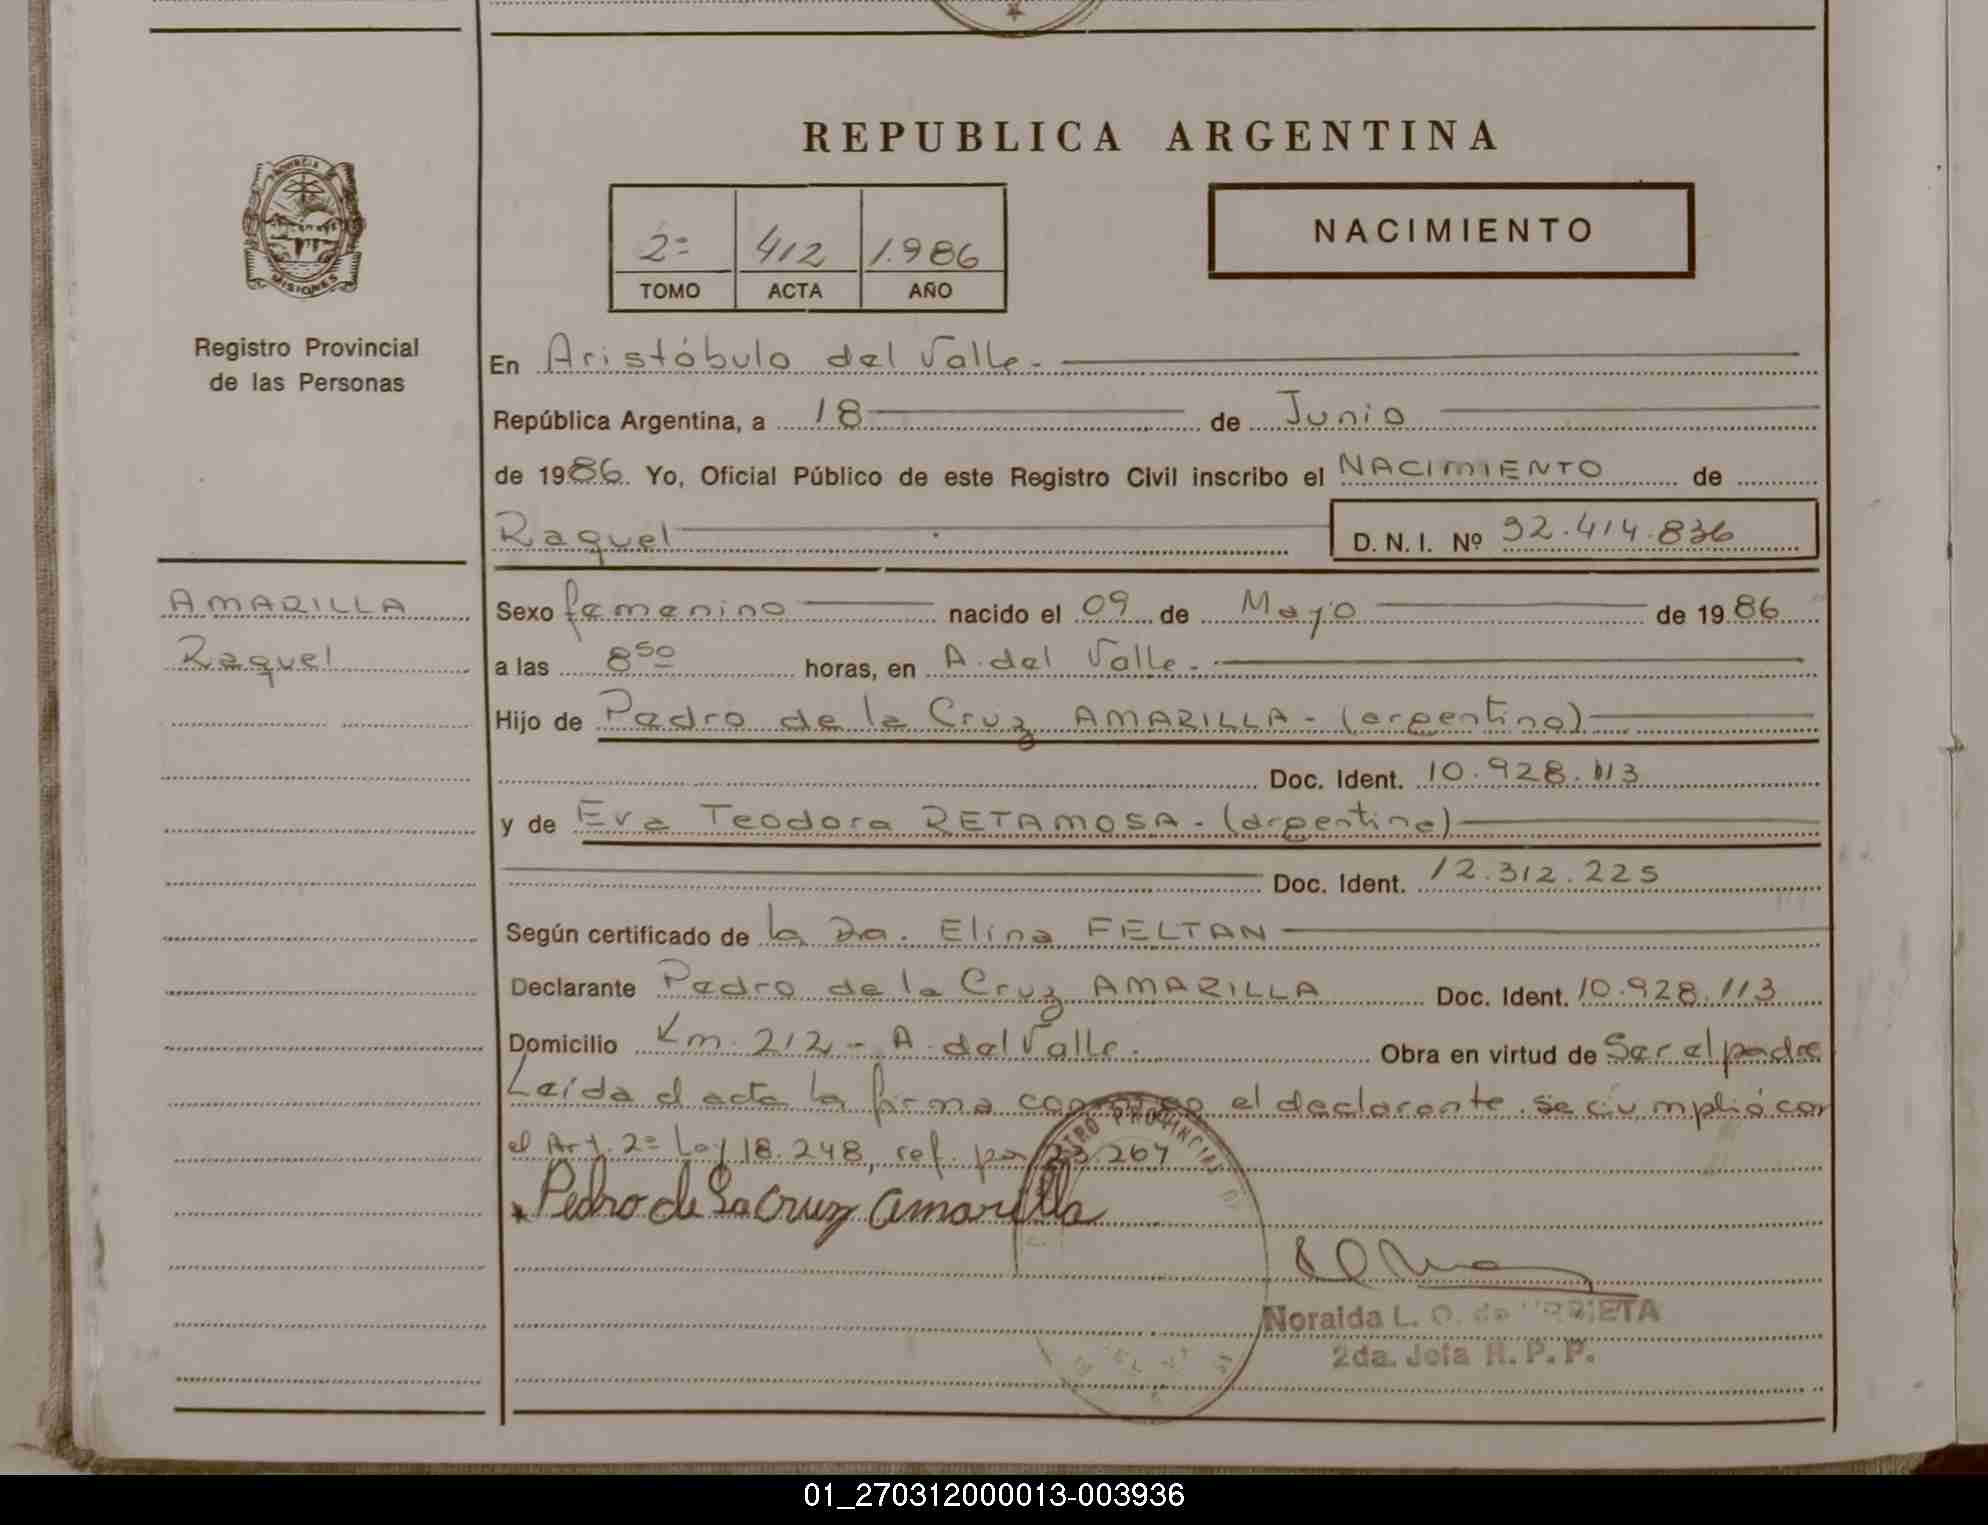 REPUBLICA ARGENTINA
PROVINCIA
MISIONES
Registro Provincial
de las Personas
2º 412 1.986
TOMO ACTA AÑO
NACIMIENTO
En Aristóbulo del Valle.-
República Argentina, a 18 de Junio
de 1986. Yo, Oficial Público de este Registro Civil inscribo el NACIMIENTO de
Raquel D. N. I. Nº 32.414.836
AMARILLA
Raquel
Sexo femenino nacido el 09 de Mayo de 1986
a las 8⁵⁰ horas, en A. del Valle.-
Hijo de Pedro de la Cruz AMARILLA - (argentino)
Doc. Ident. 10.928.113
y de Eva Teodora RETAMOSA - (argentina)
Doc. Ident. 12.312.225
Según certificado de la Da. Elina FELTAN
Declarante Pedro de la Cruz AMARILLA Doc. Ident. 10.928.113
Domicilio Km. 212 - A. del Valle. Obra en virtud de Ser el padre
Leída el acta la firma conmigo el declarante. se cumplió con
el Art. 2º Ley 18.248, ref. por 23.264
Pedro de La Cruz Amarilla
Noraida L. O. de
2da. Jefa R. P. P.
01_270312000013-003936